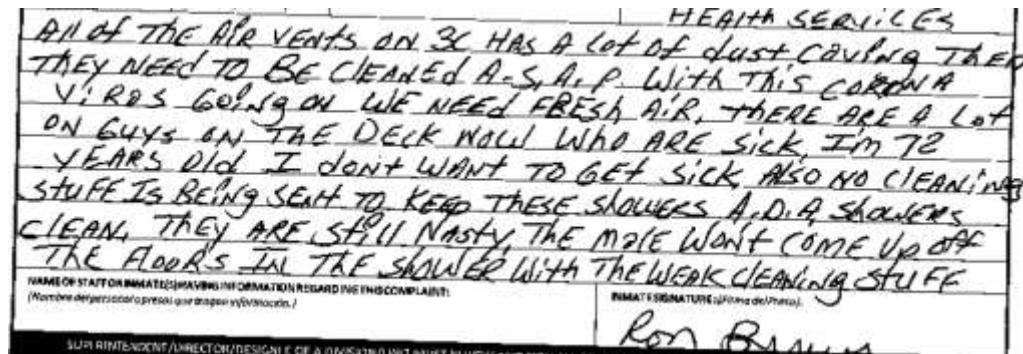 HEAlth SERViCES
All of THE AiR VENTS ON 3C HAS A lot of dust CoViNg THEM
THEY NEED TO BE ClEANEd A.S.A.P. WiTH THiS CORONA
ViROS GOiNg ON WE NEEd FRESH AiR, tHERE ARE A Lot
ON GUYS ON THE DECK NOW WHO ARE SiCK, I'm 72
YEARS Old I dont WANT TO GET SiCK, AlSo NO ClEANiNg
STUFF IS BEiNg SENT TO KEEP THESE SHOWERS A.D.A, SHOWERS
ClEAN, THEY ARE StiLL NASTY, THE MOlE WON'T COME UP off
THE FlOOR'S IN THE SHOWER WiTH THE WEAK ClEANiNg STUFF
NAME OF STAFF OR INMATE(S) HAVING INFORMATION REGARDING THIS COMPLAINT:
(Nombre del personal o presos que tengan información.)
INMATE SIGNATURE: (Firma del Preso).
Ron
SUPERINTENDENT/DIRECTOR/DESIGNEE OF A DIVISION/UNIT MUST REVIEW AND